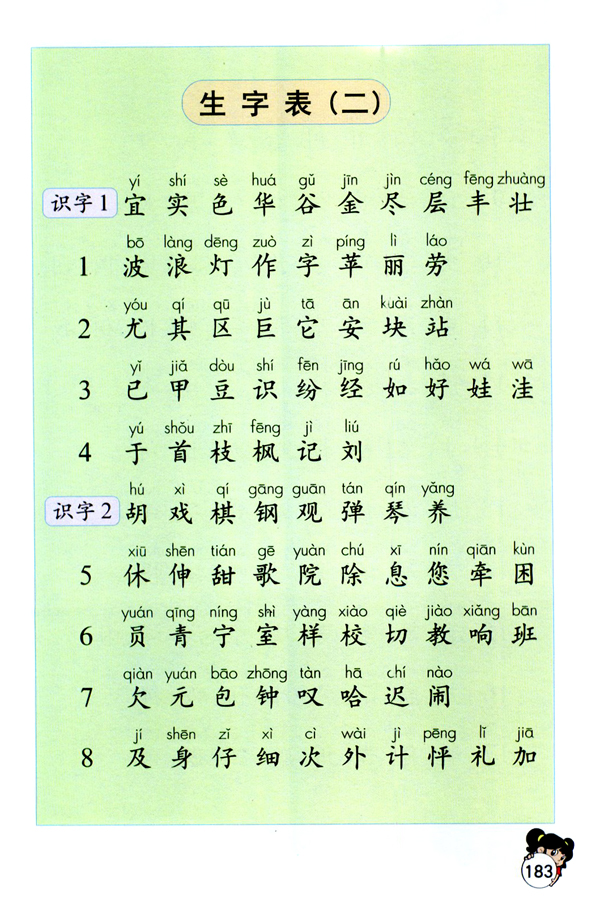 生字表（二）
yí shí sè huá gǔ jīn jìn céng fēng zhuàng
识字1 宜 实 色 华 谷 金 尽 层 丰 壮
bō làng dēng zuò zì píng lì láo
1 波 浪 灯 作 字 苹 丽 劳
yóu qí qū jù tā ān kuài zhàn
2 尤 其 区 巨 它 安 块 站
yǐ jiǎ dòu shí fēn jīng rú hǎo wá wā
3 已 甲 豆 识 纷 经 如 好 娃 洼
yú shǒu zhī fēng jì liú
4 于 首 枝 枫 记 刘
hú xì qí gāng guān tán qín yǎng
识字2 胡 戏 棋 钢 观 弹 琴 养
xiū shēn tián gē yuàn chú xī nín qiān kùn
5 休 伸 甜 歌 院 除 息 您 牵 困
yuán qīng níng shì yàng xiào qiè jiào xiǎng bān
6 员 青 宁 室 样 校 切 教 响 班
qiàn yuán bāo zhōng tàn hā chí nào
7 欠 元 包 钟 叹 哈 迟 闹
jí shēn zǐ xì cì wài jì pēng lǐ jiā
8 及 身 仔 细 次 外 计 怦 礼 加
183